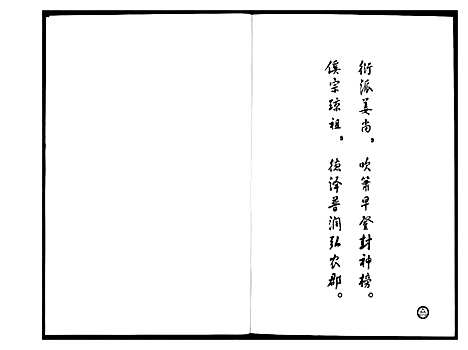 衍派姜尚，吹早登封神榜。
宗琼祖，德泽普润弘农郡。